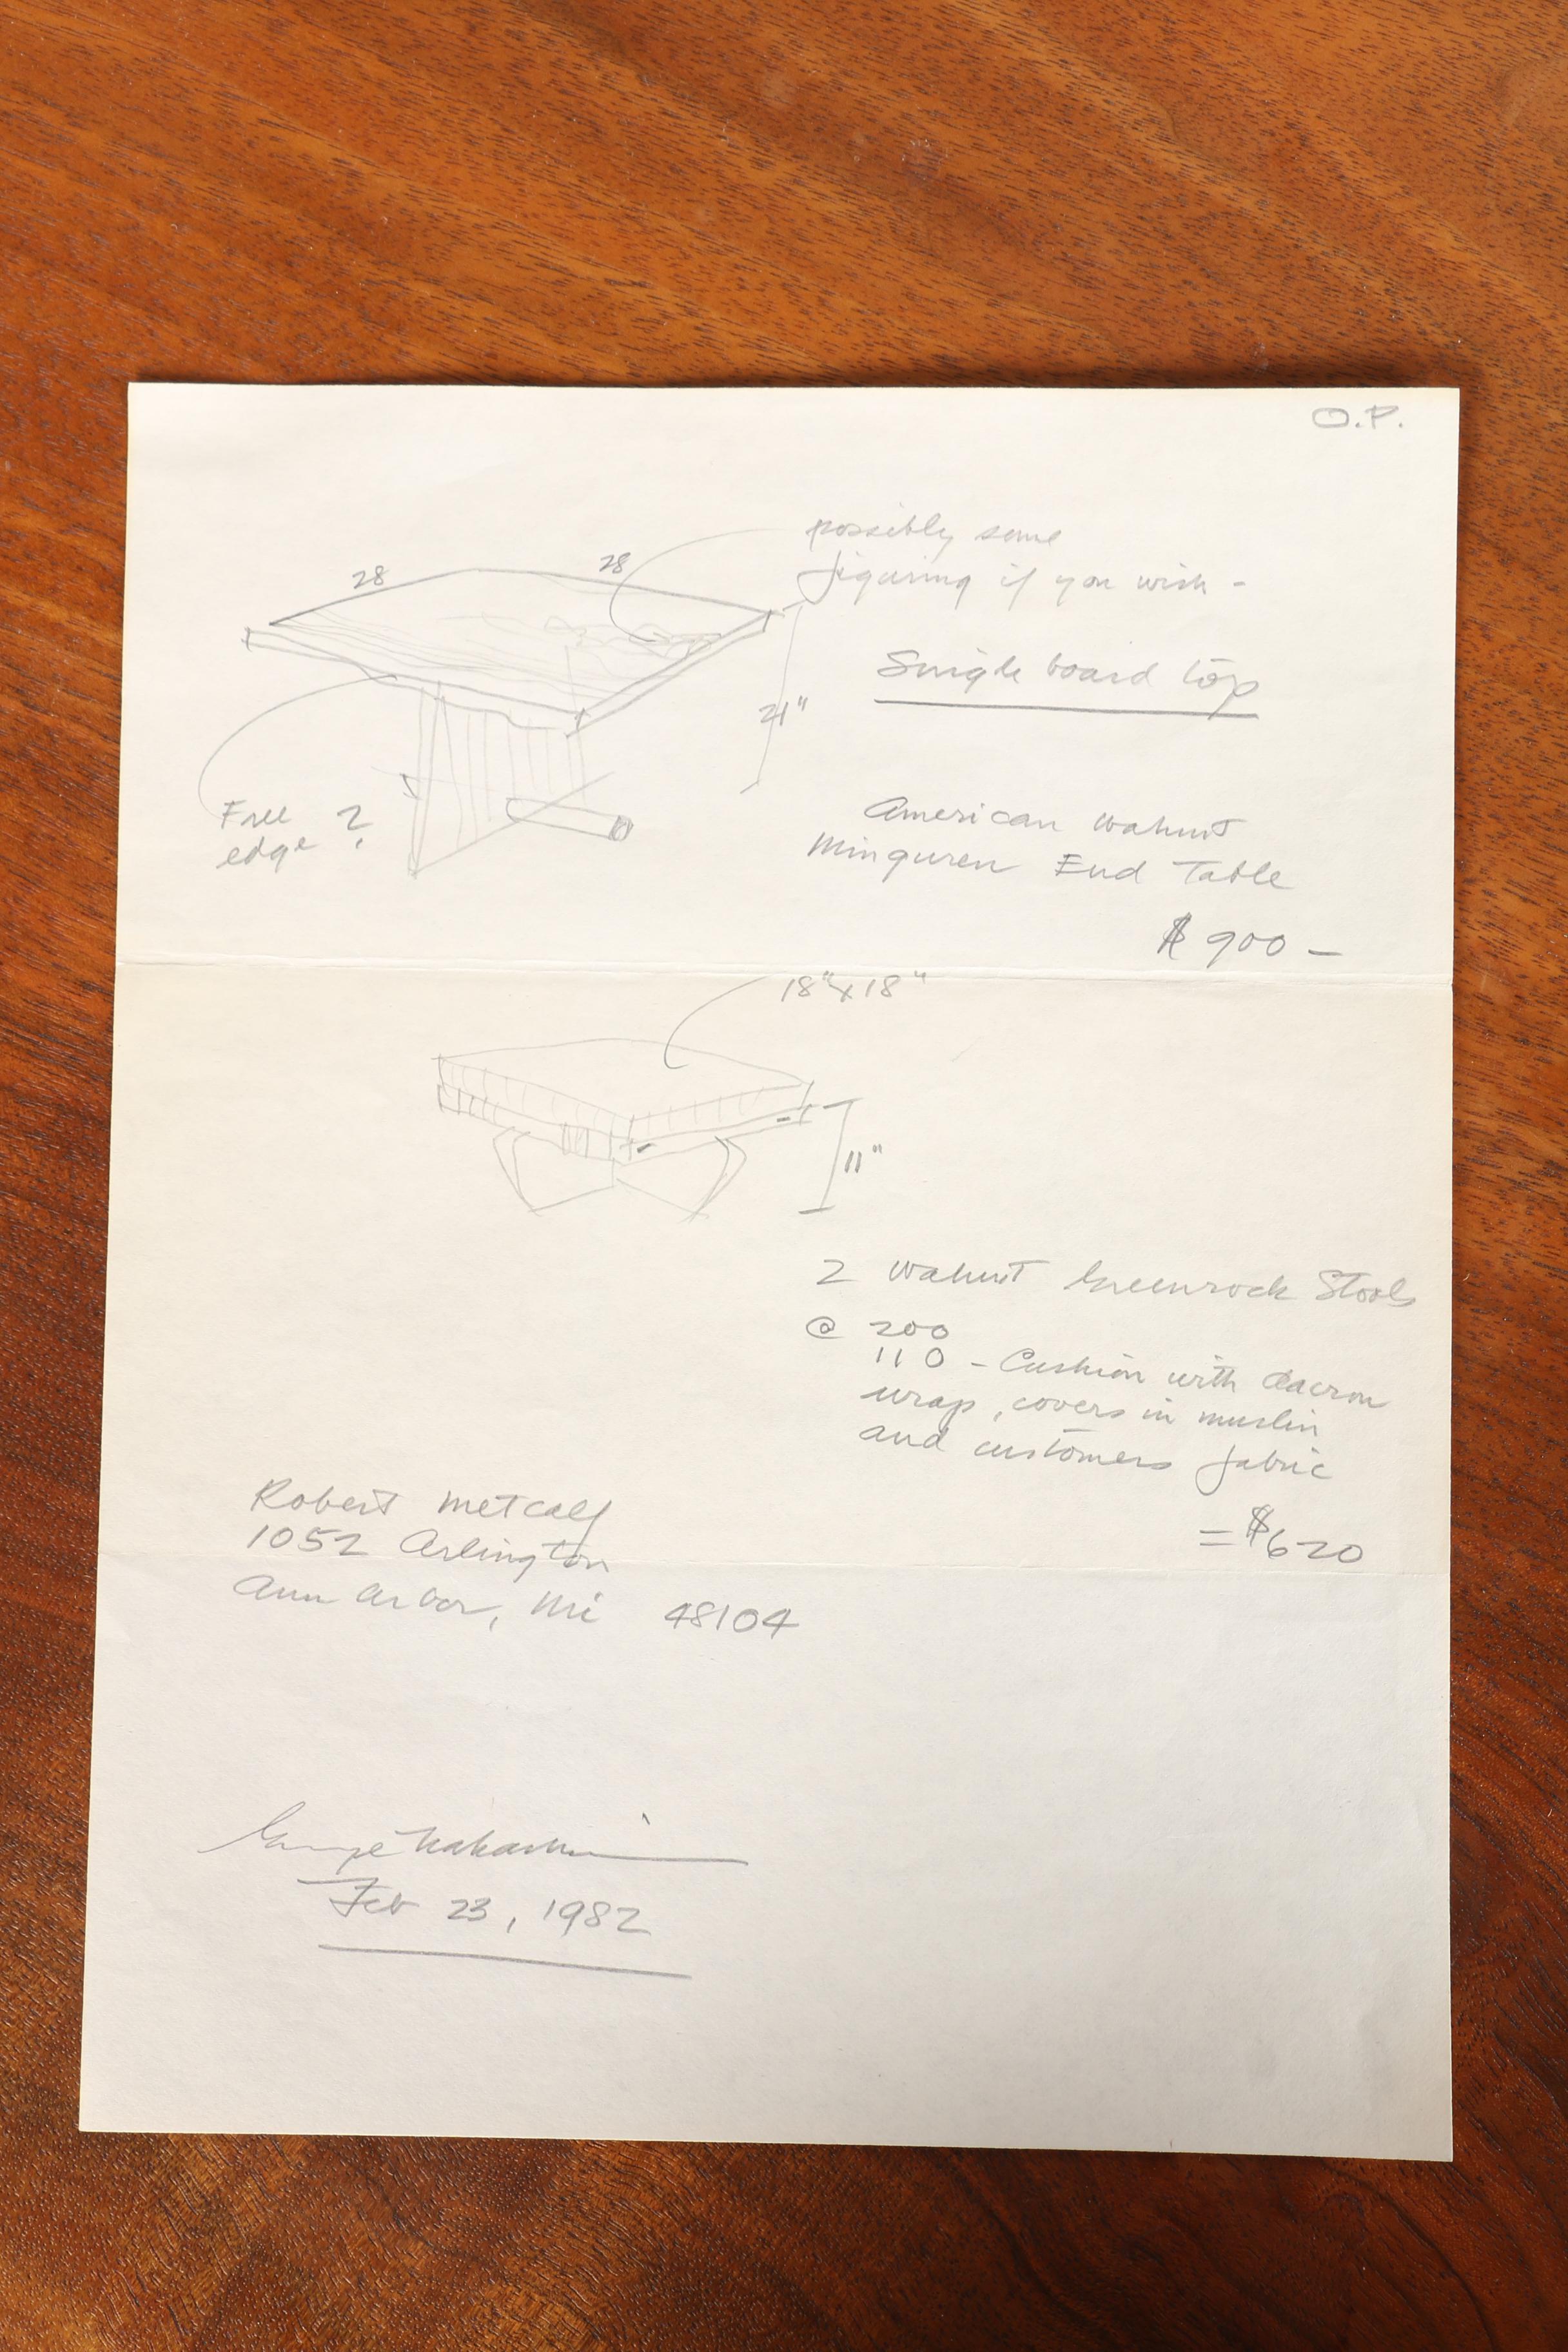 O.P.
possibly some
figuring if you wish -
28
28
Single board top
21"
Free
edge ?
American walnut
Minguren End Table
$ 900 -
18" x 18"
11"
2 walnut Greenrock Stools
@ 200
110 - Cushion with dacron
wrap, covers in muslin
and customers fabric
= $620
Robert Metcalf
1052 Arlington
Ann Arbor, Mi 48104
George Nakashima
Feb 23, 1982